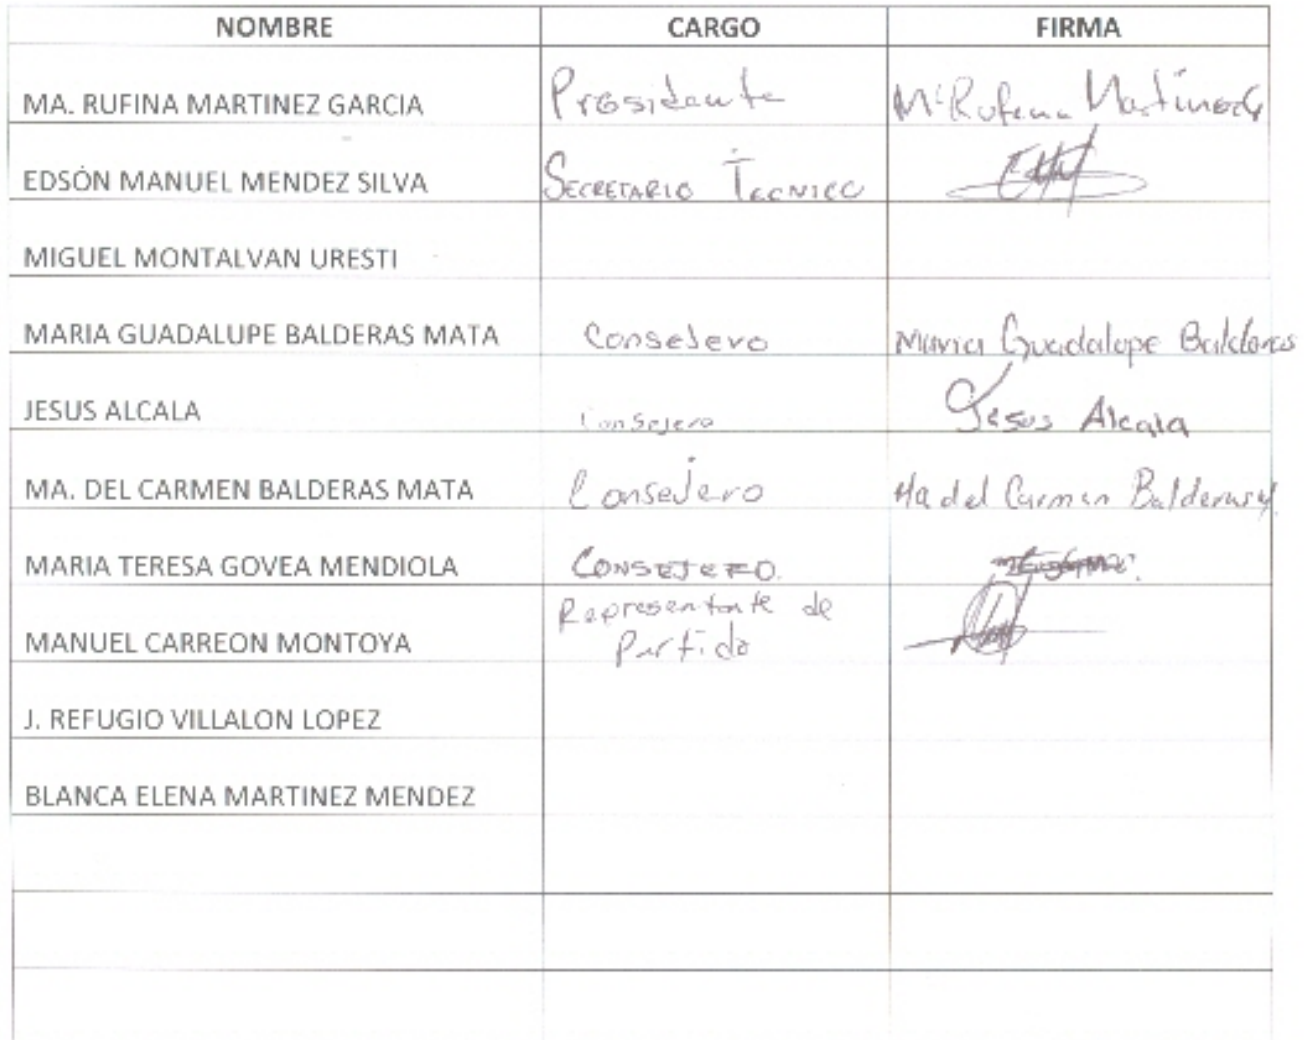 NOMBRE CARGO FIRMA
MA. RUFINA MARTINEZ GARCIA Presidente Ma Rufina Martinez G
EDSÓN MANUEL MENDEZ SILVA SECRETARIO TECNICO
MIGUEL MONTALVAN URESTI
MARIA GUADALUPE BALDERAS MATA Consejero Maria Guadalupe Balderas
JESUS ALCALA Consejero Jesus Alcala
MA. DEL CARMEN BALDERAS MATA Consejero Ma del Carmen Balderas M
MARIA TERESA GOVEA MENDIOLA CONSEJERO.
MANUEL CARREON MONTOYA Representante de
Partido
J. REFUGIO VILLALON LOPEZ
BLANCA ELENA MARTINEZ MENDEZ